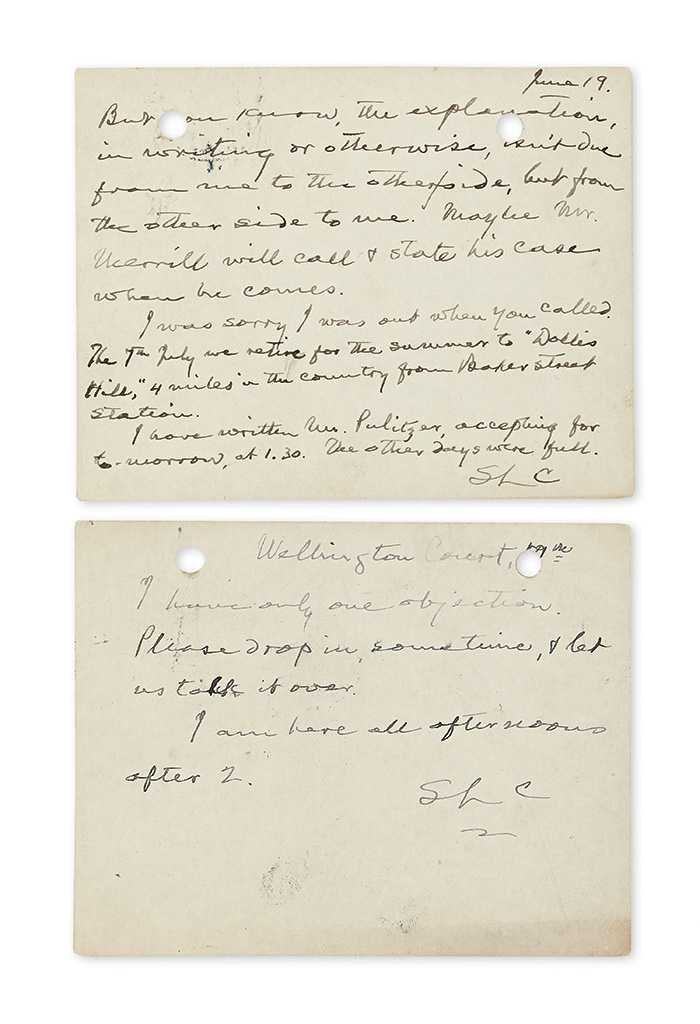 June 19.
But you know, the explanation,
in writing or otherwise, isn't due
from me to the other side, but from
the other side to me. Maybe Mr.
Merrill will call & state his case
when he comes.
I was sorry I was out when you called.
The 7th July we retire for the summer to "Dollis
Hill," 4 miles in the country from Baker street
station.
I have written Mr. Pulitzer, accepting for
to-morrow, at 1.30. The other days were full.
SLC
Wellington Court,
I have only one objection.
Please drop in, sometime, & let
us talk it over.
I am here all afternoons
after 2.
SLC